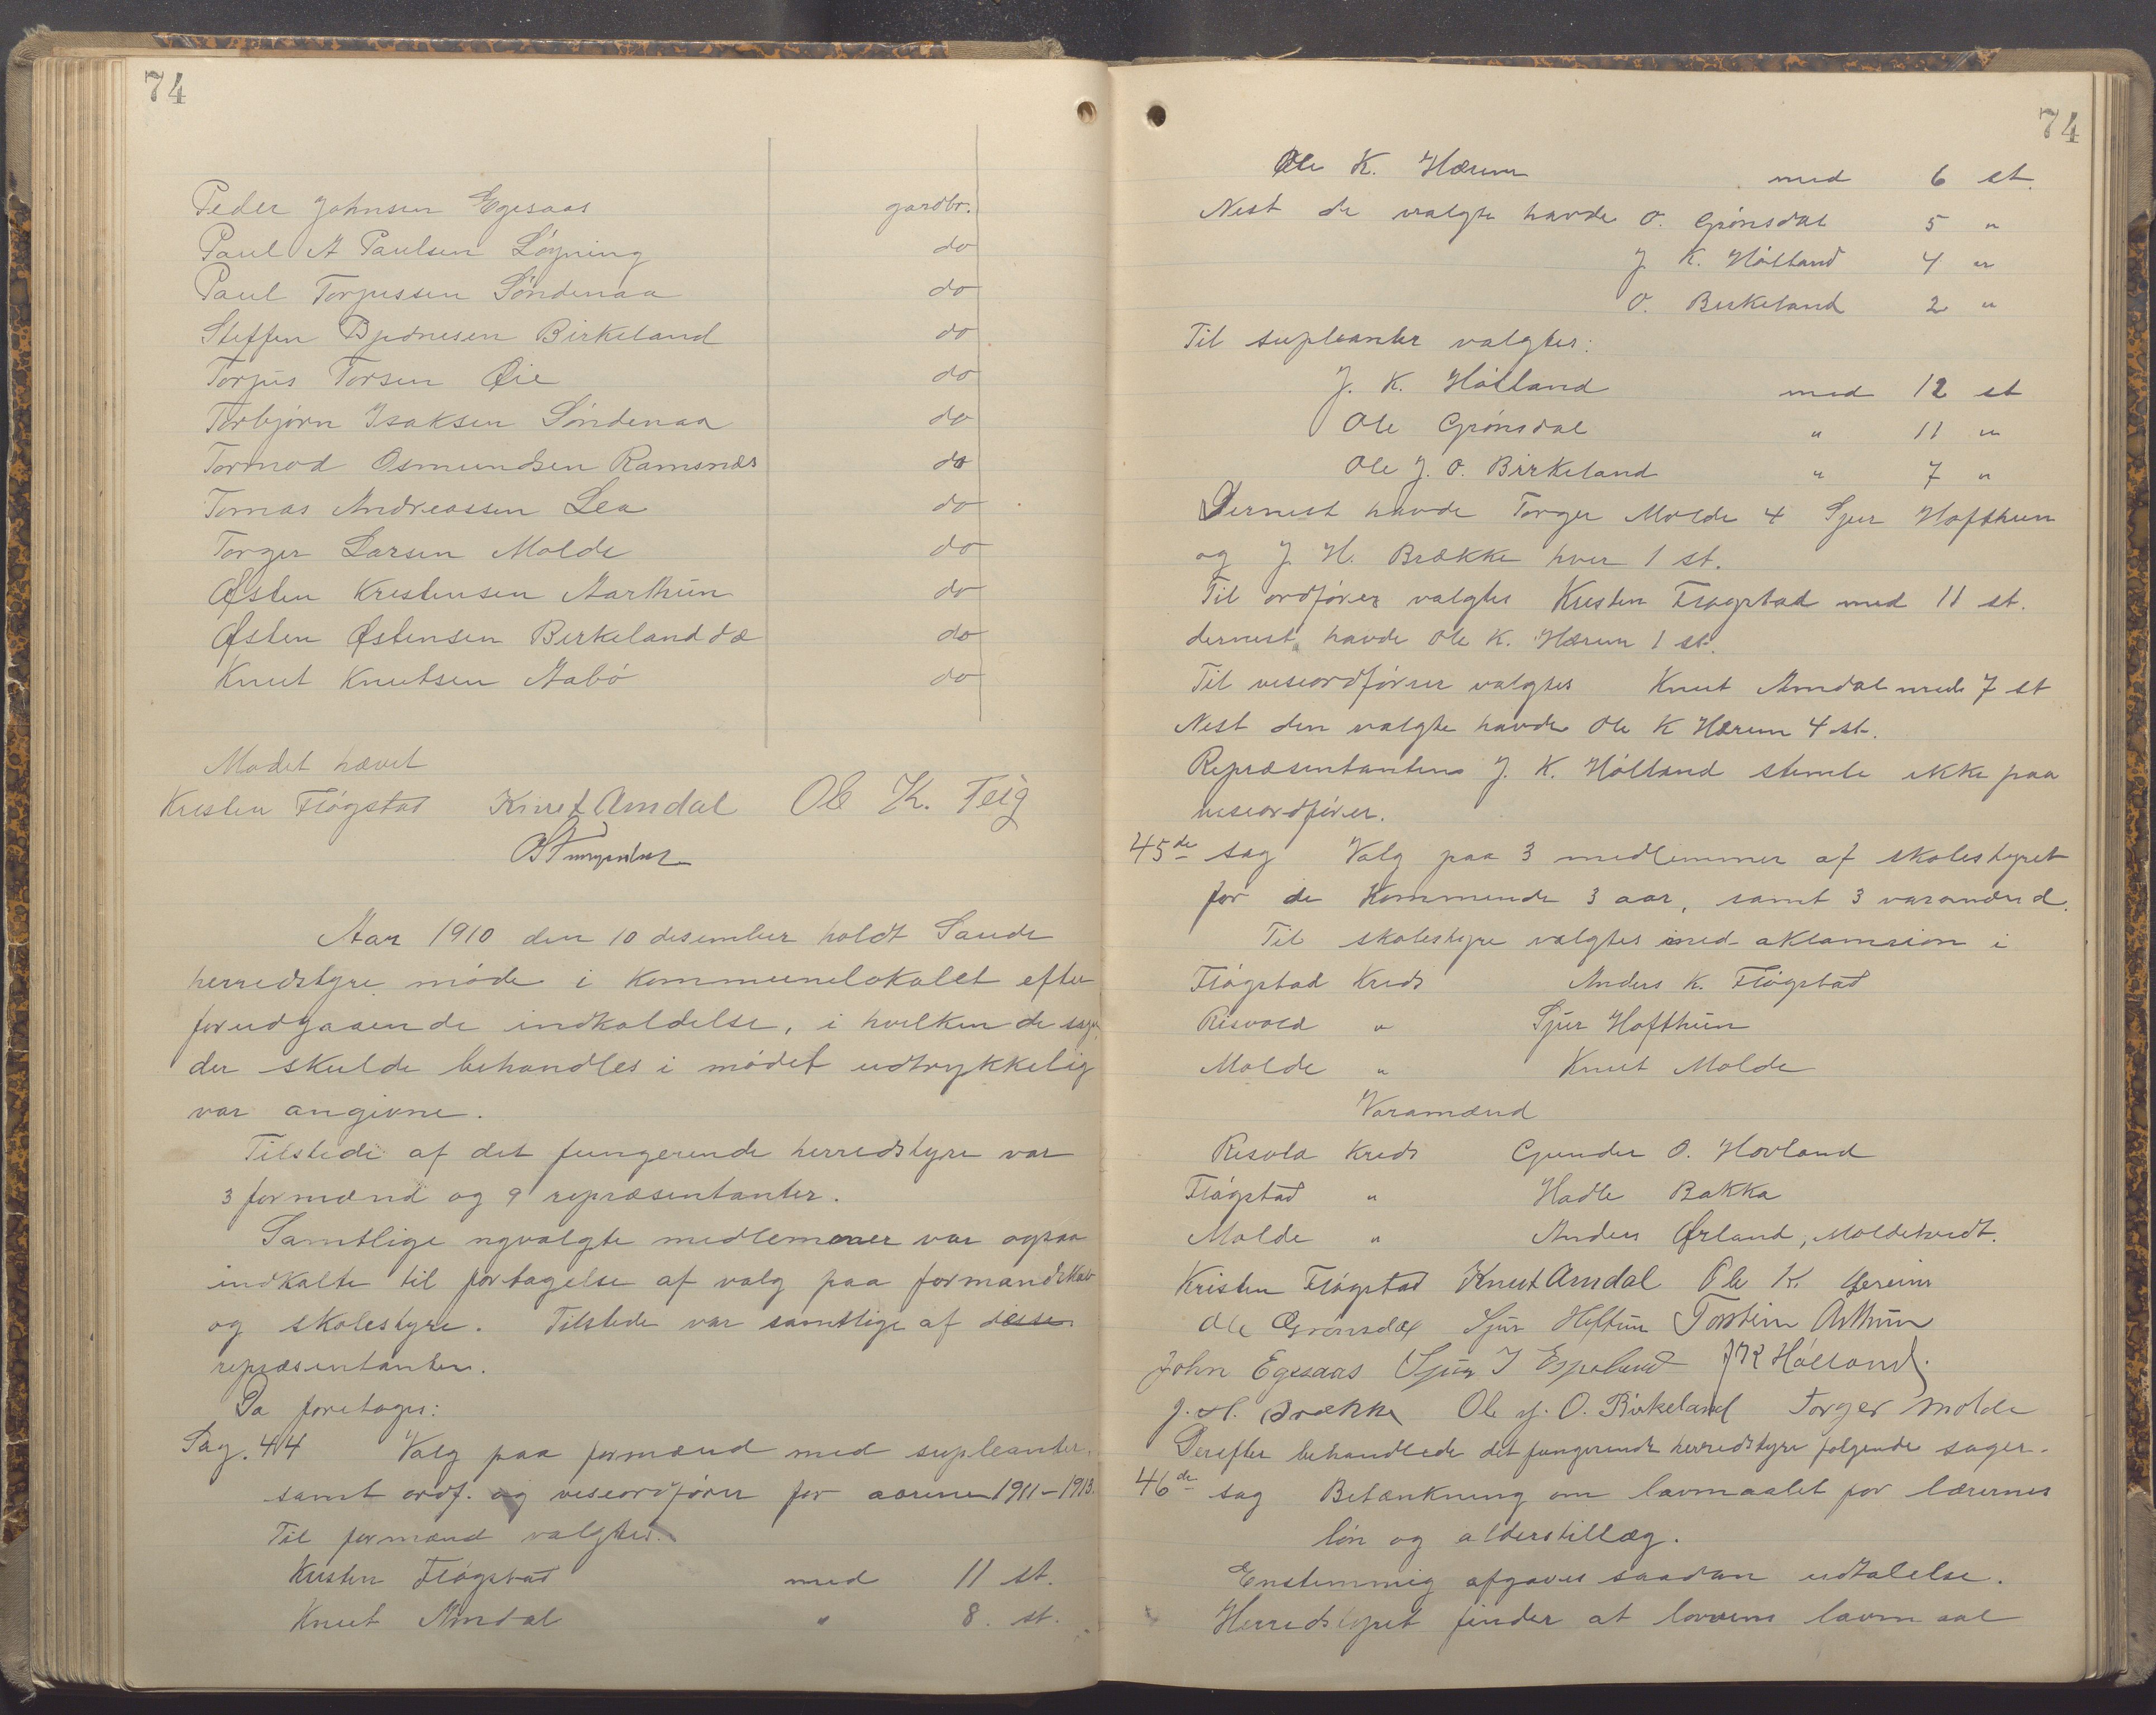 74
Peder Johnsen Egesaas gardbr.
Paul A Paulsen Løyning do
Paul Torjussen Søndenaa do
Steffen Bjørnesen Birkeland do
Torjus Torsen Øie do
Torbjørn Isaksen Søndenaa do
Tormod Osmundsen Ramsnæs do
Tomas Andreassen Lea do
Torger Larsen Molde do
Østen Kristensen Aarthun do
Østen Østensen Birkelanddæ do
Knut Knutsen Aabø do
Mødet hævet
Kristen Fløgstad Knut Amdal Ole K. Teig
Aar 1910 den 10 desember holdt Saude
herredstyre møde i kommunelokalet efter
forudgaaende indkaldelse, i hvilken de sager,
der skulde behandles i mødet udtrykkelig
var angivne.
Tilstede af det fungerende herredstyre var
3 formænd og 9 repræsentanter.
Samtlige nyvalgte medlemmer var ogsaa
indkalte til fortagelse af valg paa formandskab
og skolestyre. Tilstede var samtlige af disse
repræsentanter.
Da foretoges:
Sag. 44 Valg paa formænd med supleanter.
samt ordf. og viseordfører for aarene 1911-1913.
Til formænd valgtes.
Kristen Fløgstad med 11 st.
Knut Amdal " 8. st.
74
Ole K. Hærum med 6 st.
Nest de valgte havde O. Grønsdal 5 "
J. K. Hølland 4 "
O. Birkeland 2 "
Til supleanter valgtes:
J. K. Hølland med 12 st
Ole Grønsdal " 11 "
Ole J. O. Birkeland " 7 "
Dernest havde Torger Molde 4 Sjur Hofthun
og J. H. Brække hver 1 st.
Til ordfører valgtes Kristen Fløgstad med 11 st.
dernest havde Ole K. Hærum 1 st.
Til viseordfører valgtes Knut Amdal med 7 st
Nest den valgte havde Ole K Hærum 4 st.
Repræsentanten J. K. Hølland stemte ikke paa
viseordfører.
45de sag Valg paa 3 medlemmer af skolestyret
for de kommende 3 aar, samt 3 varamænd.
Til skolestyre valgtes med aklamsion i
Fløgstad Kreds Anders K. Fløgstad
Risvold " Sjur Hofthun
Molde " Knut Molde
Varamænd
Risvold Kreds Gunder O. Hovland
Fløgstad " Hadle Bakka
Molde " Anders Ørland, Moldetvedt.
Kristen Fløgstad Knut Amdal Ole K. Hereim
Ole Grønsdal Sjur Hoftun Torstein Arthun
John Egesaas Sjur I Espeland J K Hølland.
J. H. Brække Ole J. O. Birkeland Torger Molde
Derefter behandlede det fungerende herredstyre følgende sager.
46de sag Betænkning om lavmaalet for lærernes
løn og alderstillæg.
Enstemmig afgaves saadan udtalelse.
Herredstyret finder at lovens lavmaal